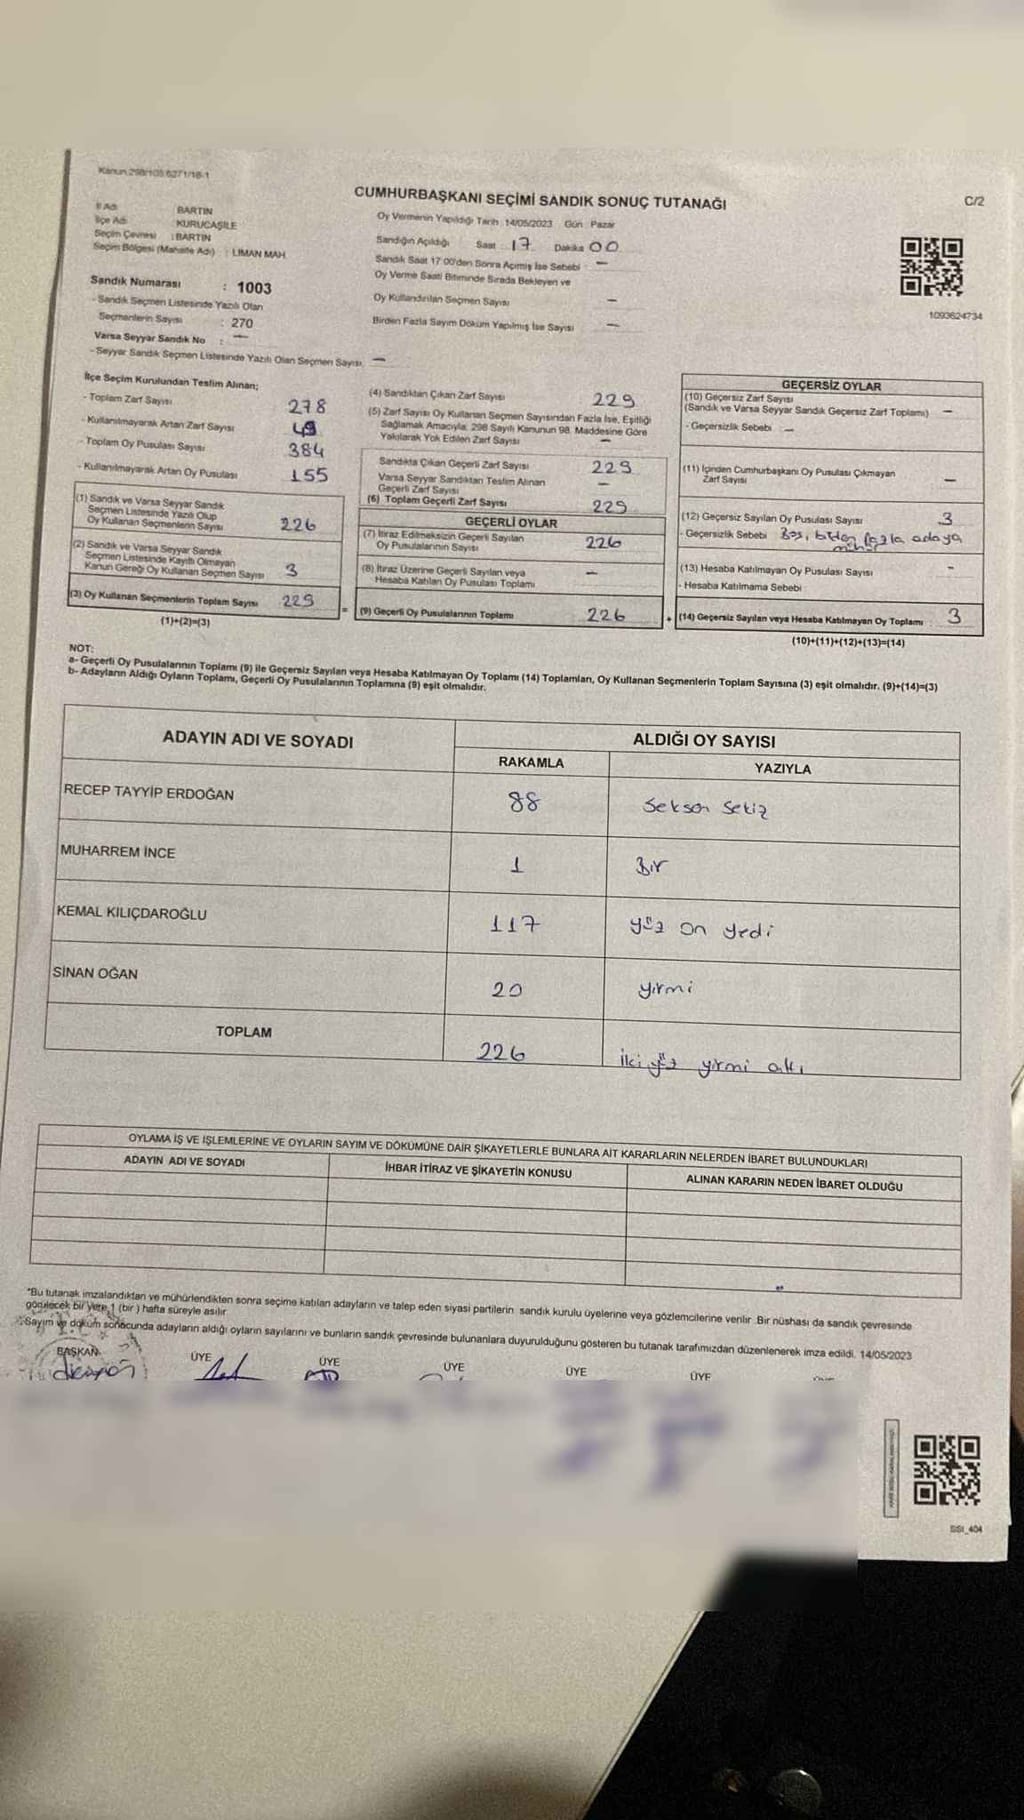 Kanun:298/105,6271/18-1
CUMHURBAŞKANI SEÇİMİ SANDIK SONUÇ TUTANAĞI
C/2
İl Adı : BARTIN
İlçe Adı : KURUCAŞİLE
Seçim Çevresi : BARTIN
Seçim Bölgesi (Mahalle Adı) : LİMAN MAH.
Sandık Numarası : 1003
- Sandık Seçmen Listesinde Yazılı Olan
Seçmenlerin Sayısı : 270
Varsa Seyyar Sandık No : —
- Seyyar Sandık Seçmen Listesinde Yazılı Olan Seçmen Sayısı —
Oy Vermenin Yapıldığı Tarih 14/05/2023 Gün Pazar
Sandığın Açıldığı Saat 17 Dakika 00
Sandık Saat 17:00'den Sonra Açılmış İse Sebebi —
Oy Verme Saati Bitiminde Sırada Bekleyen ve
Oy Kullandırılan Seçmen Sayısı —
Birden Fazla Sayım Döküm Yapılmış İse Sayısı —
1093624734
İlçe Seçim Kurulundan Teslim Alınan;
- Toplam Zarf Sayısı 278
- Kullanılmayarak Artan Zarf Sayısı 49
- Toplam Oy Pusulası Sayısı 384
- Kullanılmayarak Artan Oy Pusulası 155
(1) Sandık ve Varsa Seyyar Sandık
Seçmen Listesinde Yazılı Olup
Oy Kullanan Seçmenlerin Sayısı 226
(2) Sandık ve Varsa Seyyar Sandık
Seçmen Listesinde Kayıtlı Olmayan
Kanun Gereği Oy Kullanan Seçmen Sayısı 3
(3) Oy Kullanan Seçmenlerin Toplam Sayısı 229
(1)+(2)=(3)
(4) Sandıktan Çıkan Zarf Sayısı 229
(5) Zarf Sayısı Oy Kullanan Seçmen Sayısından Fazla İse, Eşitliği
Sağlamak Amacıyla; 298 Sayılı Kanunun 98. Maddesine Göre
Yakılarak Yok Edilen Zarf Sayısı —
Sandıkta Çıkan Geçerli Zarf Sayısı 229
Varsa Seyyar Sandıktan Teslim Alınan
Geçerli Zarf Sayısı —
(6) Toplam Geçerli Zarf Sayısı 229
GEÇERLİ OYLAR
(7) İtiraz Edilmeksizin Geçerli Sayılan
Oy Pusulalarının Sayısı 226
(8) İtiraz Üzerine Geçerli Sayılan veya
Hesaba Katılan Oy Pusulası Toplamı —
= (9) Geçerli Oy Pusulalarının Toplamı 226
GEÇERSİZ OYLAR
(10) Geçersiz Zarf Sayısı
(Sandık ve Varsa Seyyar Sandık Geçersiz Zarf Toplamı) —
- Geçersizlik Sebebi : —
(11) İçinden Cumhurbaşkanı Oy Pusulası Çıkmayan
Zarf Sayısı —
(12) Geçersiz Sayılan Oy Pusulası Sayısı 3
- Geçersizlik Sebebi Boş, birden fazla adaya
mühür
(13) Hesaba Katılmayan Oy Pusulası Sayısı -
- Hesaba Katılmama Sebebi
+ (14) Geçersiz Sayılan veya Hesaba Katılmayan Oy Toplamı 3
(10)+(11)+(12)+(13)=(14)
NOT:
a- Geçerli Oy Pusulalarının Toplamı (9) ile Geçersiz Sayılan veya Hesaba Katılmayan Oy Toplamı (14) Toplamları, Oy Kullanan Seçmenlerin Toplam Sayısına (3) eşit olmalıdır. (9)+(14)=(3)
b- Adayların Aldığı Oyların Toplamı, Geçerli Oy Pusulalarının Toplamına (9) eşit olmalıdır.
ADAYIN ADI VE SOYADI
ALDIĞI OY SAYISI
RAKAMLA YAZIYLA
RECEP TAYYİP ERDOĞAN 88 seksen sekiz
MUHARREM İNCE 1 Bir
KEMAL KILIÇDAROĞLU 117 yüz on yedi
SİNAN OĞAN 20 yirmi
TOPLAM 226 iki yüz yirmi altı
OYLAMA İŞ VE İŞLEMLERİNE VE OYLARIN SAYIM VE DÖKÜMÜNE DAİR ŞİKAYETLERLE BUNLARA AİT KARARLARIN NELERDEN İBARET BULUNDUKLARI
ADAYIN ADI VE SOYADI İHBAR İTİRAZ VE ŞİKAYETİN KONUSU ALINAN KARARIN NEDEN İBARET OLDUĞU
*Bu tutanak imzalandıktan ve mühürlendikten sonra seçime katılan adayların ve talep eden siyasi partilerin sandık kurulu üyelerine veya gözlemcilerine verilir. Bir nüshası da sandık çevresinde
görülecek bir yere 1 (bir ) hafta süreyle asılır.
Sayım ve döküm sonucunda adayların aldığı oyların sayılarını ve bunların sandık çevresinde bulunanlara duyurulduğunu gösteren bu tutanak tarafımızdan düzenlenerek imza edildi. 14/05/2023
BAŞKAN ÜYE ÜYE ÜYE ÜYE ÜYE
SSI_404